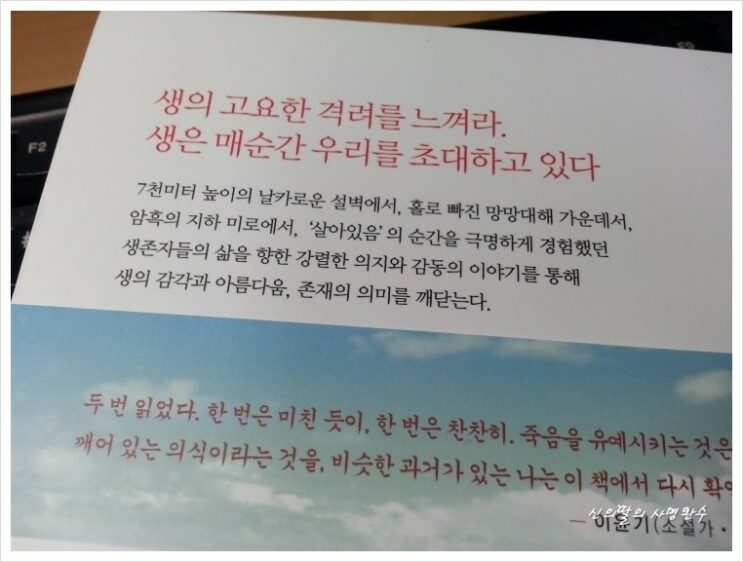 F2
F9
생의 고요한 격려를 느껴라.
생은 매순간 우리를 초대하고 있다
7천미터 높이의 날카로운 설벽에서, 홀로 빠진 망망대해 가운데서,
암흑의 지하 미로에서, ‘살아있음’의 순간을 극명하게 경험했던
생존자들의 삶을 향한 강렬한 의지와 감동의 이야기를 통해
생의 감각과 아름다움, 존재의 의미를 깨닫는다.
두 번 읽었다. 한 번은 미친 듯이, 한 번은 찬찬히. 죽음을 유예시키는 것은
깨어 있는 의식이라는 것을, 비슷한 과거가 있는 나는 이 책에서 다시 확인
— 이윤기(소설가·
신의딸의 사명완수